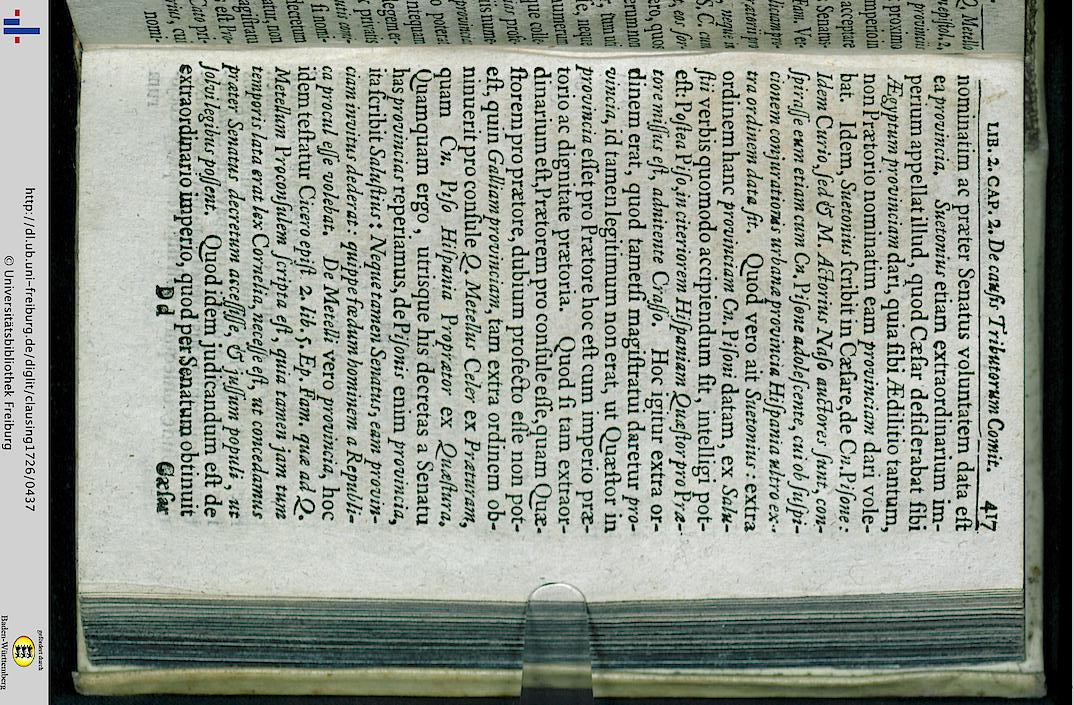 LIB. 2. CAP. 2. De cauſis Tributorum Comit. 417
nominatim ac præter Senatus voluntatem data eſt
ea provincia. Suetonius etiam extraordinarium im-
perum appellat illud, quod Cæſar deſiderabat ſibi
Ægyptum provinciam dari, quia ſibi Ædilitio tantum,
non Prætorio nominatim eam provinciam dari vole-
bat. Idem, Suetonius ſcribit in Cæſare, de Cn. Piſone:
Idem Curio, ſed & M. Actorius Naſo auctores ſunt, con-
ſpiraſſe eum etiam cum Cn. Piſone adoleſcente, cui ob ſuſpi-
cionem conjurationis urbanæ provincia Hiſpania ultro ex-
tra ordinem data ſit. Quod vero ait Suetonius extra
ordinem hanc provinciam Cn. Piſoni datam, ex Salu-
ſtii verbis quomodo accipiendum ſit, intelligi pot-
eſt: Poſtea Piſo, in citeriorem Hiſpaniam Quæſtor pro Præ-
tore miſſus eſt, adnitente Craſſo. Hoc igitur extra or-
dinem erat, quod tametſi magiſtratui daretur pro-
vincia, id tamen legitimum non erat, ut Quæſtor in
provincia eſſet pro Prætore hoc eſt cum imperio præ-
torio ac dignitate prætoria. Quod ſi tam extraor-
dinarium eſt, Prætorem pro conſule eſſe, quam Quæ-
ſtorem pro prætore, dubium profecto eſſe non pot-
eſt, quin Galliam provinciam, tam extra ordinem ob-
tinuerit pro conſule Q. Metellus Celer ex Præturam,
quam Cn. Piſo Hiſpania Proprætor ex Quæſtura.
Quamquam ergo, utrisque his decretas a Senatu
has provincias reperiamus, de Piſonis enim provincia,
ita ſcribit Saluſtius: Neque tamen Senatus, eam provin-
ciam invitus dederat: quippe fœdum hominem a Republi-
ca procul eſſe volebat. De Metelli vero provincia, hoc
idem teſtatur Cicero epiſt 2. lib. 5. Ep. Fam. quæ ad Q.
Metellum Proconſulem ſcripta eſt, quia tamen jam tum
temporis lata erat lex Cornelia, neceſſe eſt, ut concedamus
præter Senatus decretum acceſſiſſe, & juſſum populi, ut
ſolvi legibus poſſent. Quod idem judicandum eſt de
extraordinario imperio, quod per Senatum obtinuit
D d Cæſar
http://dl.ub.uni-freiburg.de/diglit/clausing1726/0437
© Universitätsbibliothek Freiburg
gefördert durch
Baden-Württemberg